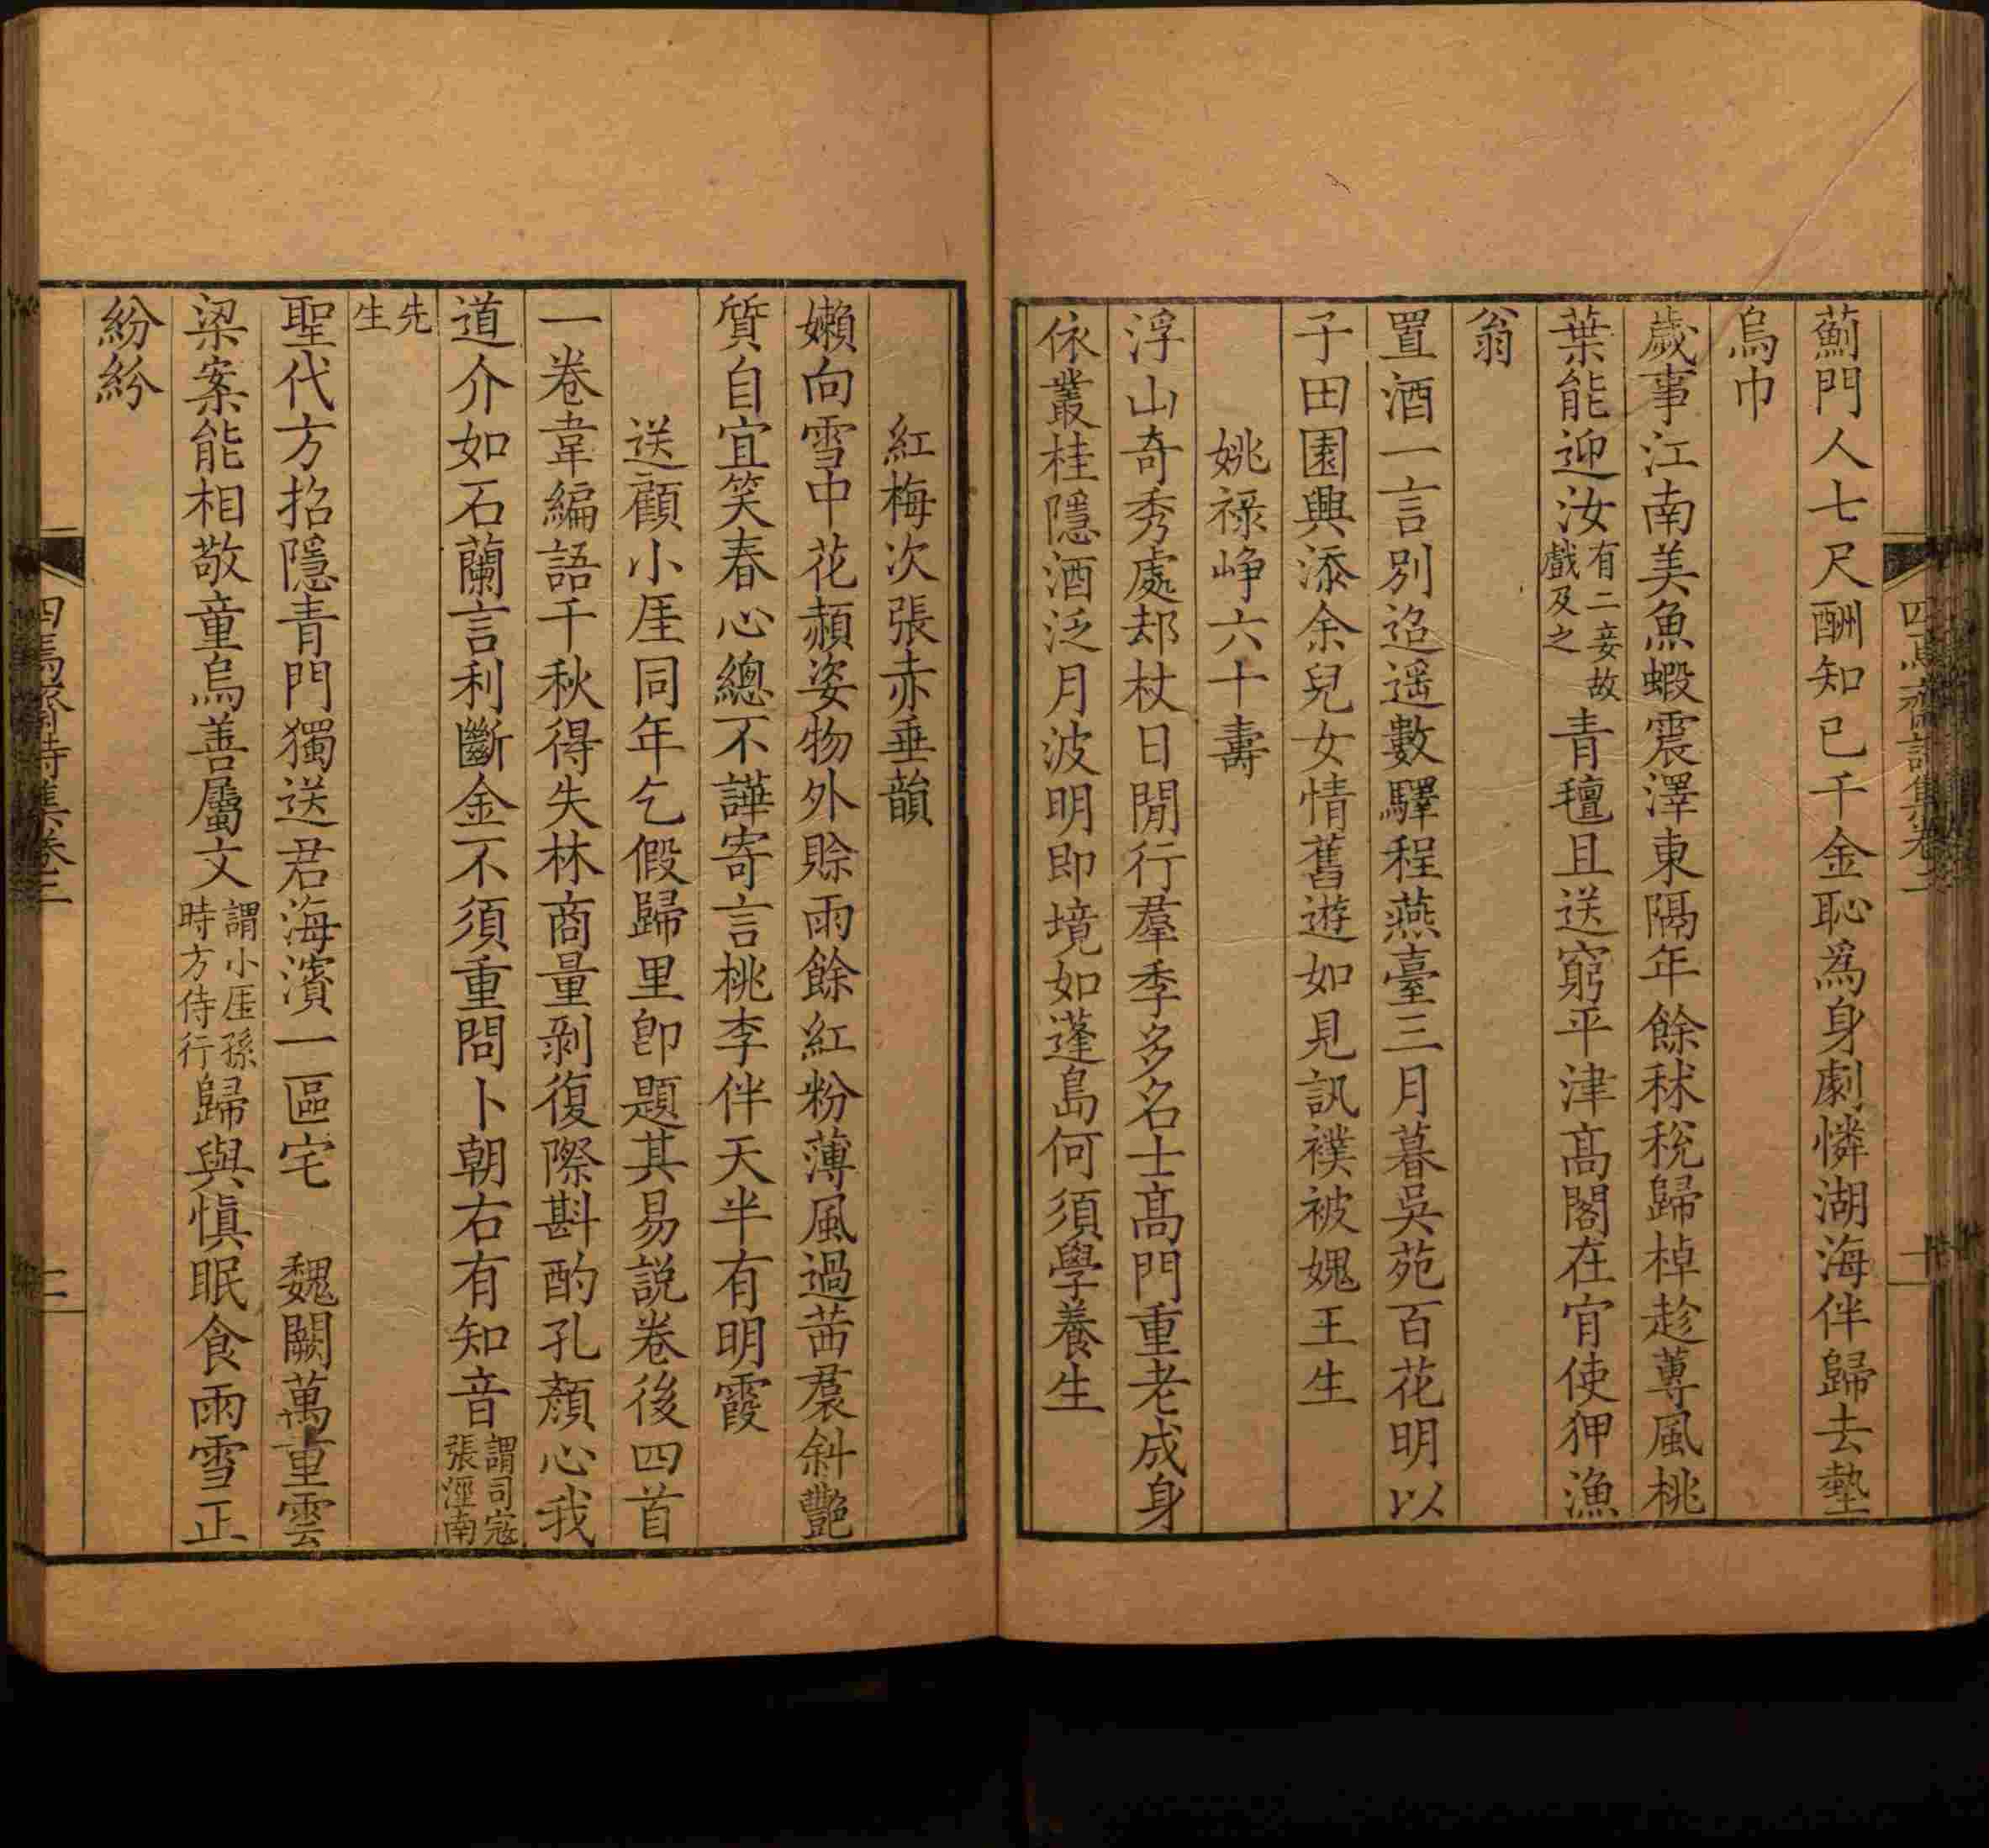 薊門人七尺酬知已千金恥爲身劇憐湖海伴歸去墊
烏巾
歲事江南美魚蝦震澤東隔年餘秫稅歸棹趁蓴風桃
葉能迎汝有二妾故戲及之青氊且送窮平津髙閣在肎使狎漁
翁
置酒一言別迢遥數驛程燕臺三月暮吳苑百花明以
子田園興添余兒女情舊遊如見訊襆被媿王生
姚祿崢六十壽
浮山奇秀處却杖日閒行羣季多名士髙門重老成身
依叢桂隱酒泛月波明即境如蓬島何須學養生
紅梅次張赤垂韻
嬾向雪中花頳姿物外賒雨餘紅粉薄風過茜裠斜艷
質自宜笑春心總不譁寄言桃李伴天半有明霞
送顧小厓同年乞假歸里卽題其易説卷後四首
一卷韋編語千秋得失林商量剥復際斟酌孔顏心我
道介如石蘭言利斷金不須重問卜朝右有知音謂司寇張涇南
先生
聖代方招隱青門獨送君海濱一區宅　魏闕萬重雲
梁案能相敬童烏善屬文謂小厓孫時方侍行歸與慎眠食雨雪正
紛紛
四焉齋詩集卷三
二